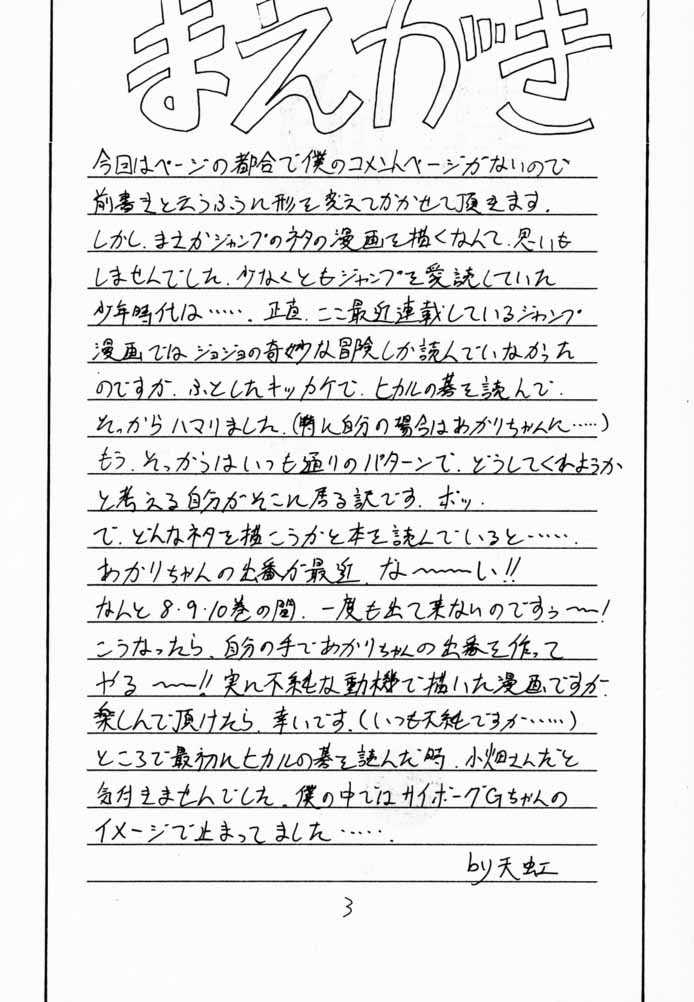 まえがき
今回はページの都合で僕のコメントページがないので
前書きと云うふうに形を変えてかかせて頂きます.
しかし.まさかジャンプのネタの漫画を描くなんて.思いも
しませんでした.少なくともジャンプを愛読していた
少年時代は……. 正直.ここ最近連載しているジャンプ
漫画ではジョジョの奇妙な冒険しか読んでいなかった
のですが.ふとしたキッカケで.ヒカルの碁を読んで.
そっからハマリました.(特に自分の場合はあかりちゃんに……)
もう.そっからはいつも通りのパターンで.どうしてくれようか
と考える自分がそこに居る訳です.ポッ.
で.どんなネタを描こうかと本を読んでいると…….
あかりちゃんの出番が最近.な〜〜〜い!!
なんと8・9・10巻の間.一度も出て来ないのですぅ〜〜!
こうなったら.自分の手であかりちゃんの出番を作って
やる〜〜!!実に不純な動機で描いた漫画ですが.
楽しんで頂けたら.幸いです.(いつも不純ですが……)
ところで最初にヒカルの碁を読んだ時.小畑さんだと
気付きませんでした.僕の中ではサイボーグGちゃんの
イメージで止まってました…….
by天虹
3